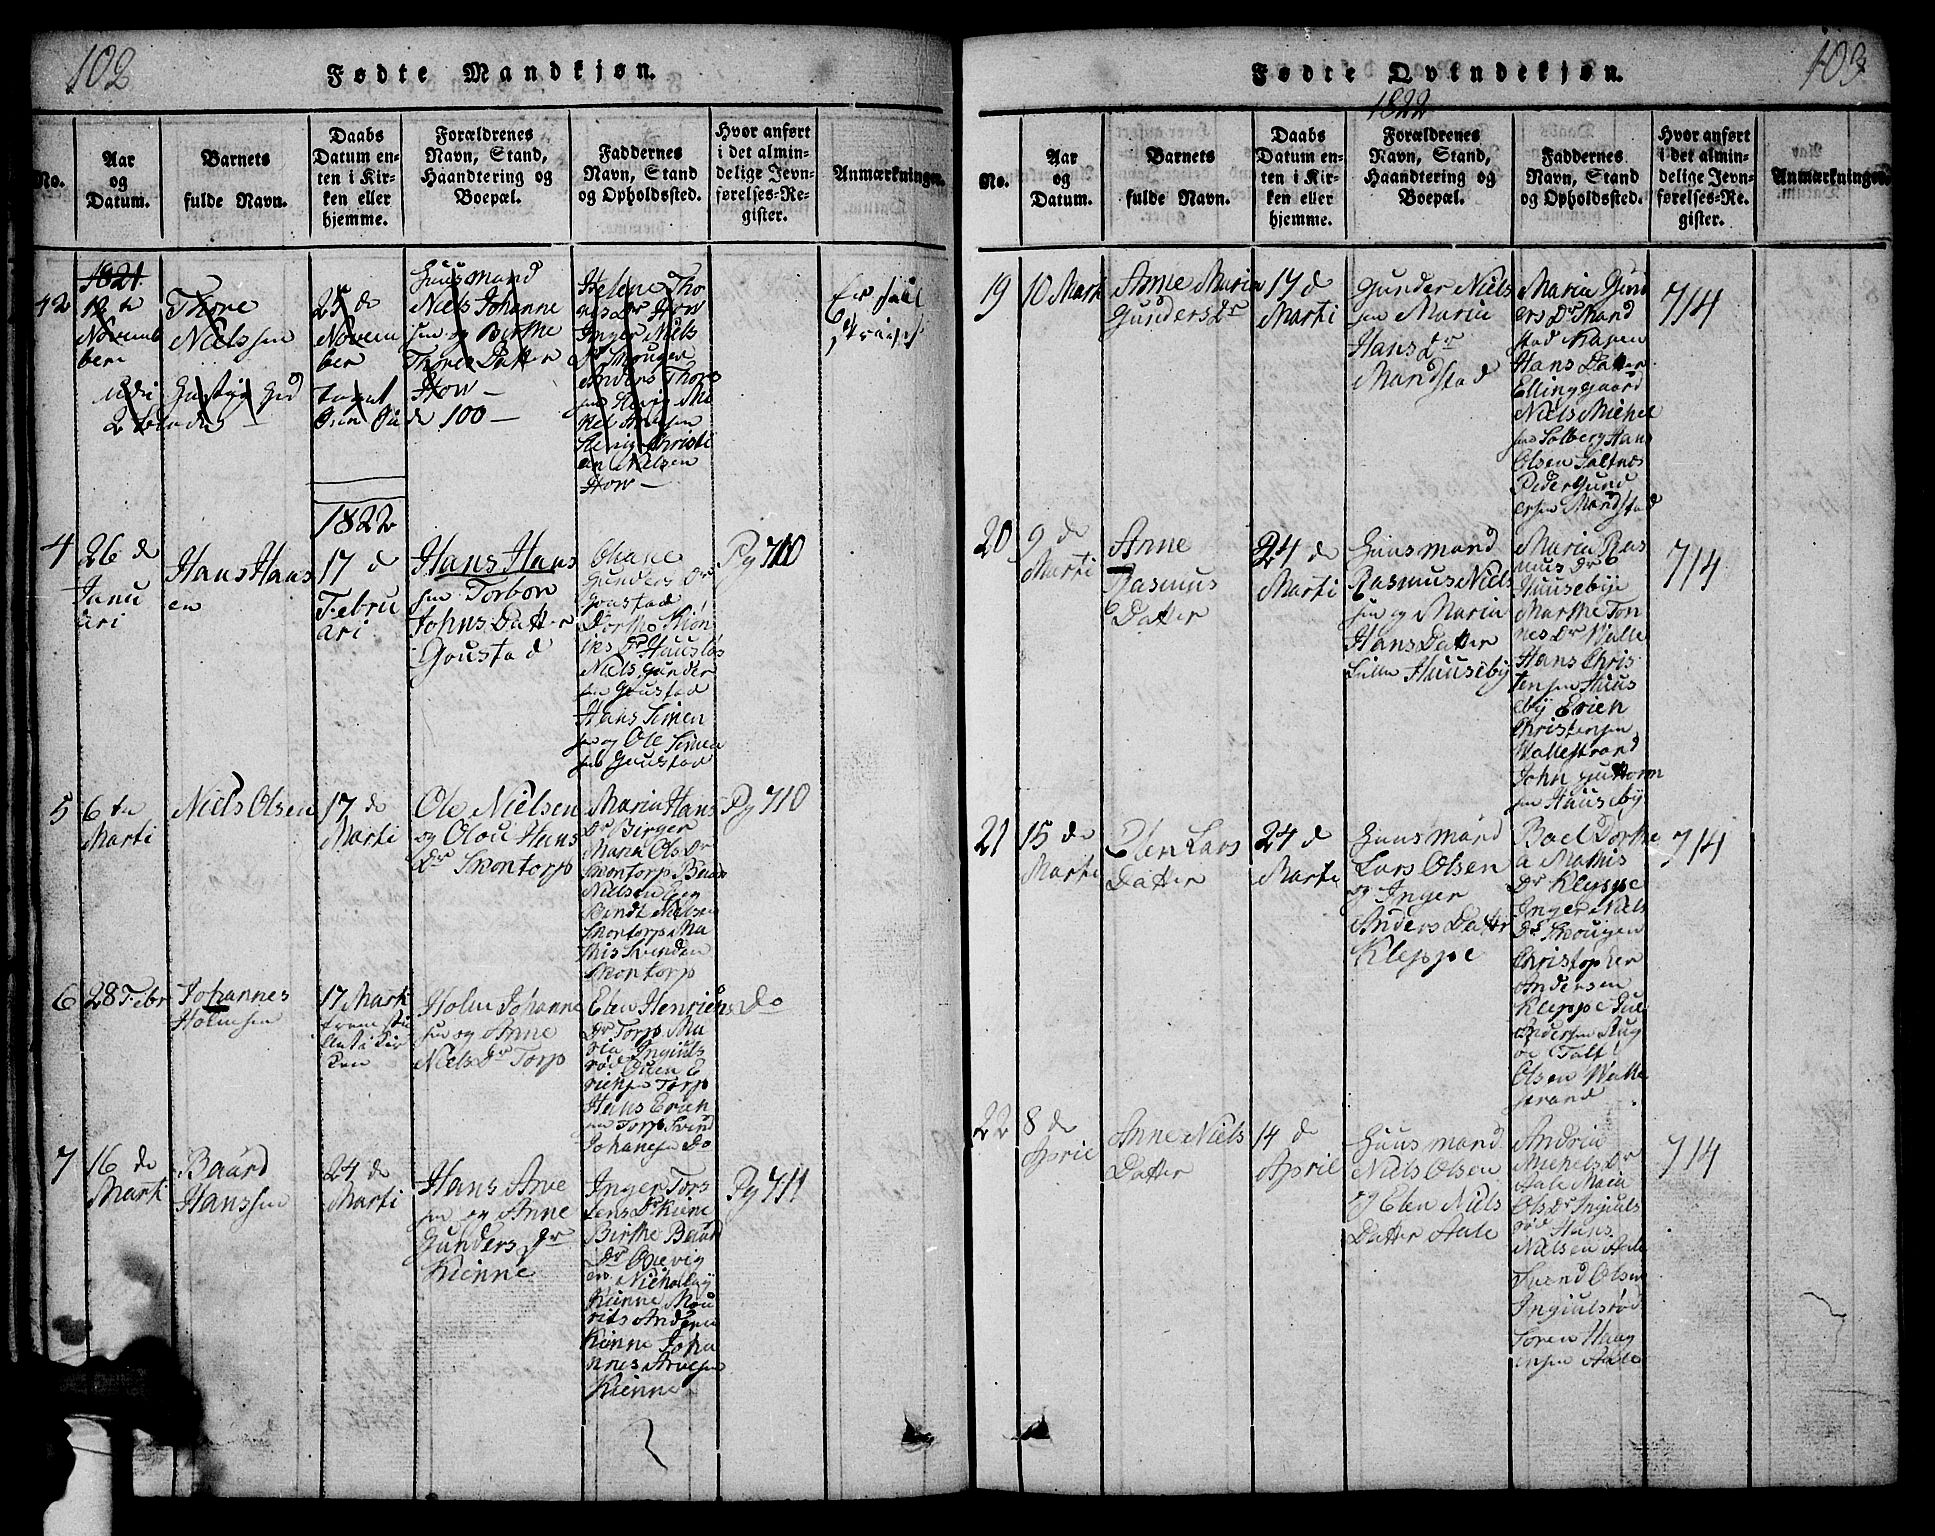 102
Fødte Mandkjøn.
No.
Aar
og
Datum.
Barnets
fulde Navn.
Daabs
Datum en-
ten i Kir-
ken eller
hjemme.
Forældrenes
Navn, Stand,
Haandtering og
Boepæl.
Faddernes
Navn, Stand
og Opholdssted.
Hvor anført
i det almin-
delige Jevn-
førelses-Re-
gister.
Anmærkninger.
1821
42
12 te
Novem
ber
Thore
Nielssen
25 de
Novem
ber
Huusmand
Niels Johanne
sen og Birthe
Thores Datter
How
Helene Tho
res Dr How
Inger Niels
Dr
Anders Thors
sen
Christi
an Nielsen
How
2
de 100
1822
4
26 de
Janu
ari
Hans Hans
en
17 de
Febru
ari
Hans Hans
sen Torbor
Johns Datter
Goustad
Gunders Dr
Goustad
Dorthe
Dr Hausløs
Niels Gunder
sen Goustad
Hans Simen
sen og Ole Simen
sen Goustad
Pg 710
5
6 te
Marti
Niels Olsen
17 de
Marti
Ole Nielsen
og Oloui Hans
Dr Skontorp
Maria Hans
Dr Birger
Maria Ols Dr
Skontorp
Nielsen
Berndt Nielsen
Skontorp Ma
this Svendsen
Skontorp
Pg 710
6
28 Febr
Johannes
Holmsen
17 Mark
Kir
ken
Holm Johanne
sen og Anne
Niels Dr Torp
Elen Henrichs
Dr Torp Ma
ria Ingiuls
rød Olsen E
richs Torp
Hans Erich
sen Torp Svend
Johansen Do
Do
7
16 de
Marti
Baård
Hanssen
24 de
Marti
Hans Arve
sen og Anne
Gunders Dr
Kienne
Inger Tors
tens Dr Kiene
Birthe Baård
Dr Oievig
en Nicholay
Kienne Mou
rits Andersen
Kienne Joha
nnes Arvesen
Kienne
Pg 711
103
Fødte Qvindekjøn.
1822
No.
Aar
og
Datum.
Barnets
fulde Navn.
Daabs
Datum en-
ten i Kir-
ken eller
hjemme.
Forældrenes
Navn, Stand,
Haandtering og
Boepæl.
Faddernes
Navn, Stand
og Opholdssted.
Hvor anført
i det almin-
delige Jevn-
førelses-Re-
gister.
Anmærkninger.
19
10 Mark
Anne Maria
Gunders Dr
17 de
Marti
Gunder Niels
sen Maria
Hans Dr
Mandstad
Maria Gund
ers Dr Mand
stad Karen
Hans Datter
Ellinggaard
Niels Michel
sen Solberg Hans
Olsen Saltnes
Peder Gund
ersen Mandstad
714
20
9 de
Marti
Anne
Rasmus
Datter
24 de
Marti
Huusmand
Rasmus Niels
sen og Maria
Hans Datter
Lille Huuseby
Maria Ras
mus Dr
Huusebye
Marthe Ton
nes Dr Walle
Hans Chris
tensen Huus
eby Erich
Christensen
Wallestrand
John Guttorm
sen Huuseby
714
21
15 de
Marti
Elen Lars
Datter
24 de
Marti
Huusmand
Lars Olsen
og Inger
Anders Datter
Kleppe
Boel Dorthe
a Mathis
Dr Kleppe
Inger Niels
Dr Skougen
Christopher
Andersen
Kleppe Jul
Andersen
Olsen Walle
strand
714
22
8 de
April
Anne Niels
Datter
14 de
April
Huusmand
Niels Olsen
og Elen Niels
Datter Aale
Andria
Michels Dr
Aale Maria
Ols Dr Ingiuls
rød Hans
Nielsen Aale
Svend Olsen
Ingiulsrød
Soren Haag
ensen Aale
714